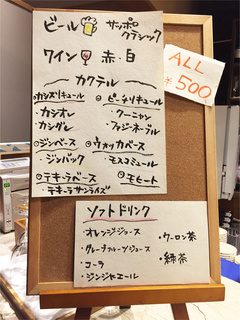 ビール サッポロ クラシック
ワイン 赤・白
カクテル
◎カシスリキュール
・カシオレ
・カシグレ
◎ピーチリキュール
・クーニャン
・ファジーネーブル
◎ジンベース
・ジンバック
◎ウォッカベース
・モスコミュール
◎テキーラベース
・テキーラサンライズ
◎モヒート
ALL
¥500
ソフトドリンク
・オレンジジュース
・グレープフルーツジュース
・コーラ
・ジンジャエール
・ウーロン茶
・緑茶